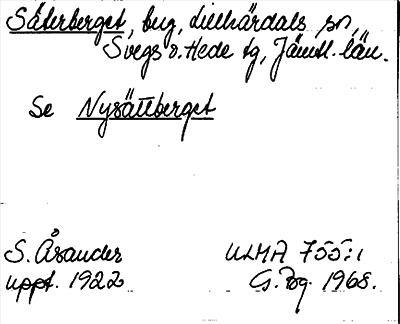 Säterberget, bug, Lillhärdals sn,
Svegs o. Hede tg, Jämtl. län.
Se Nysättberget
S. Åsander
uppt. 1922
ULMA 755:1
G. Bg. 1968.